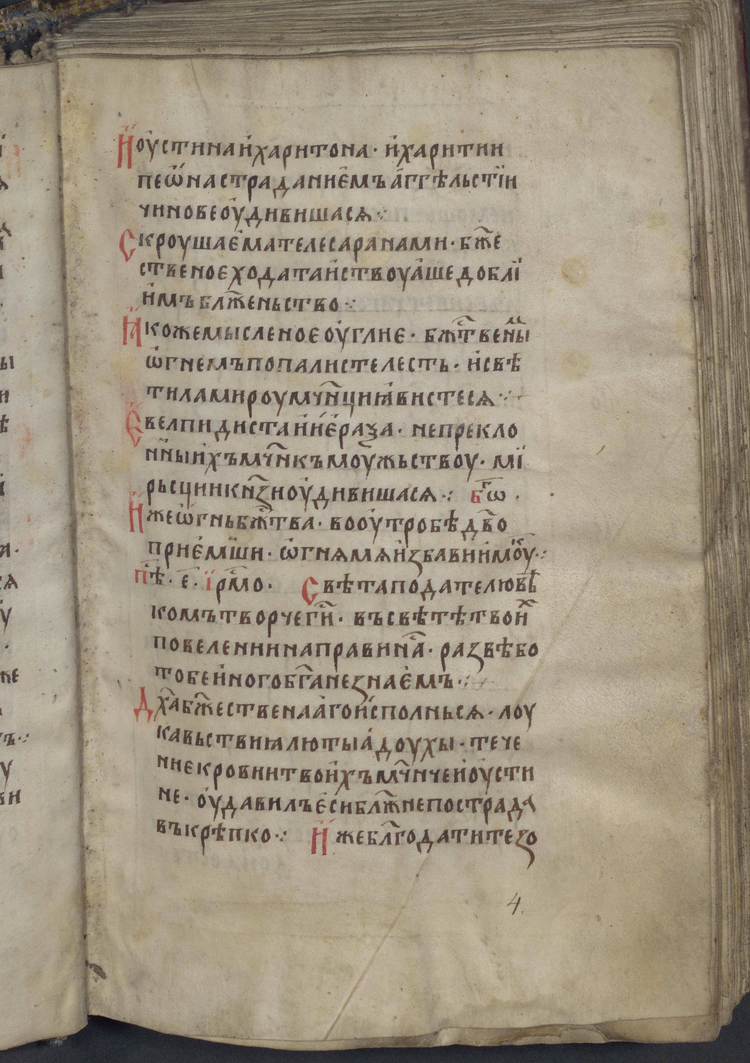 И҆оустина и҆ харитона · и҆ харитии
пеѡ҆на страданиє҆мъ а҆гг҃льстїи
чинове оу҆дивишася ⁘
Скроушає҆ма телеса ранами · бж҃е
ствено є҆ ходатаиство уа҆ше доблї
и҆мъ блж҃еньство ⁘
Ꙗ҆коже мысленоє оу҆глиє · бжⷭ҇твены
ѡ҆гнемъ попалисте лесть · и҆ свѣ
тила мироу мч҃нци ꙗ҆вистеся ⁘
Є҆велпидиста и҆ и҆є҆раѯа · непрекло
нныи҆хъ мч҃нкъ моу҆жьствоу · мї
рьсции кн҃зи оу҆дивишася ⁘ бг҃ѡ ·
И҆же ѡ҆гнь бжⷭ҇тва · во оу҆тробѣ дв҃о
приє҆мши · ѡ҆гня мя и҆збави и҆ моукⷤ ⁘
пѣⷭ҇ · є҃ · і҆рмо · Свѣта подателю вѣ
комъ творче ги҃ · въ свѣтѣ твои҆хⷤ
повелении направи на · развѣ бо
тобе и҆ного бг҃а не знає҆мъ ⁘
Дх҃а бжⷭ҇ествена а҆го и҆сполнься · лоу
кавьствиꙗ лютыа҆ доухы · тече
ниє крови твои҆хъ мч҃ниче и҆оу҆сти
не · оу҆давилъ є҆си блж҃не пострада
въ крѣпко ⁘ И҆же блг҃одати тезо
4.